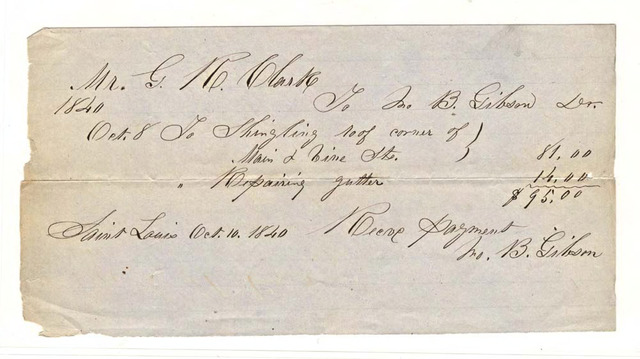 Mr. G. R. Clark
1840 To Jno B. Gibson Dr.
Oct. 8 To Shingling roof corner of }
Main & Vine Sts. 81.00
" Repairing gutter 14.00
$95.00
Saint Louis Oct. 10. 1840 Recve payment
Jno. B. Gibson